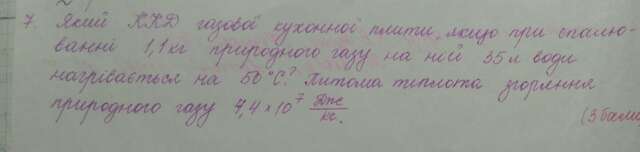 7. Який ККД газової кухонної плити, якщо при спалю-
ванні 1,1 кг природного газу на ній 35 л води
нагрівається на 50 °С? Питома теплота згоряння
природного газу 4,4 × 10⁷ Дж/кг.
(3 бали